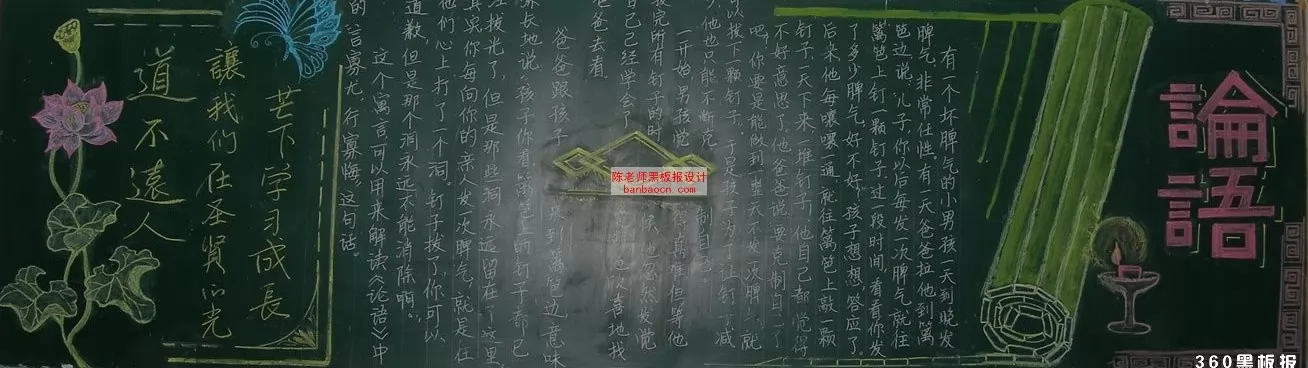 論語
有一个坏脾气的小男孩一天到晚发
脾气,非常任性。有一天爸爸拉他到篱
笆边说,儿子,你以后每发一次脾气就往
篱笆上钉一颗钉子,过一段时间,看看你发
了多少脾气,好不好?孩子想想,答应了。
后来他每嚷嚷一通,就往篱笆上敲一颗
钉子,一天下来,一堆钉子,他自己都觉得
不好意思了。他爸爸说,要克制自己了
吧,你要是能做到一整天不发一次脾气,就
可以拔下一颗钉子。于是孩子为了让钉子减
少,他也只能不断克制自己。
一开始,男孩觉得真难,但等他
拔完所有钉子的时候,他忽然发觉
自己已经学会了
欢喜地找
爸爸去看。
爸爸跟孩子来到篱笆边,意味
深长地说,孩子你看篱笆上的钉子都已
拔光了,但是那些洞永远留在了这里
其实你每向你的亲人发一次脾气,就是在
他们心上打了一个洞。钉子拔了,你可以
道歉,但是那个洞永远不能消除啊。
这个寓言可以用来解读《论语》中
的言寡尤,行寡悔。这句话。
芒下学习成長
讓我们在圣賢 光
道不遠人
陈老师黑板报设计
banbaocn.com
360黑板报